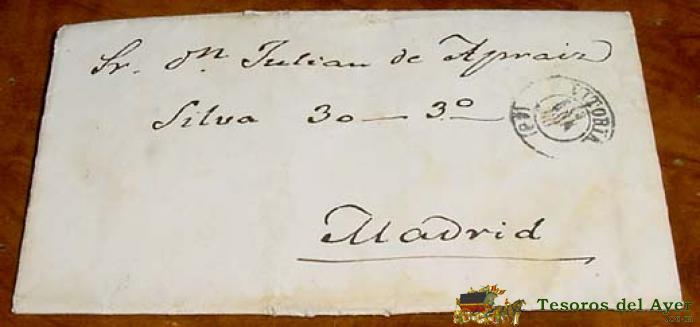 Sr. Dn. Julian de Apraiz
Silva 30 — 3º
Madrid
VITORIA
(P41)
Tesoros del Ayer
.com